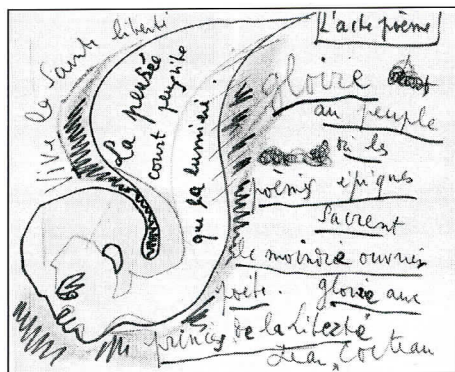 Vive la Sainte liberté
La pensée
court plus vite
que la lumière.
L'acte poème
gloire
au peuple
où les
poèmes épiques
sacrent
le moindre ouvrier
poète. gloire aux
princes de la liberté
Jean Cocteau